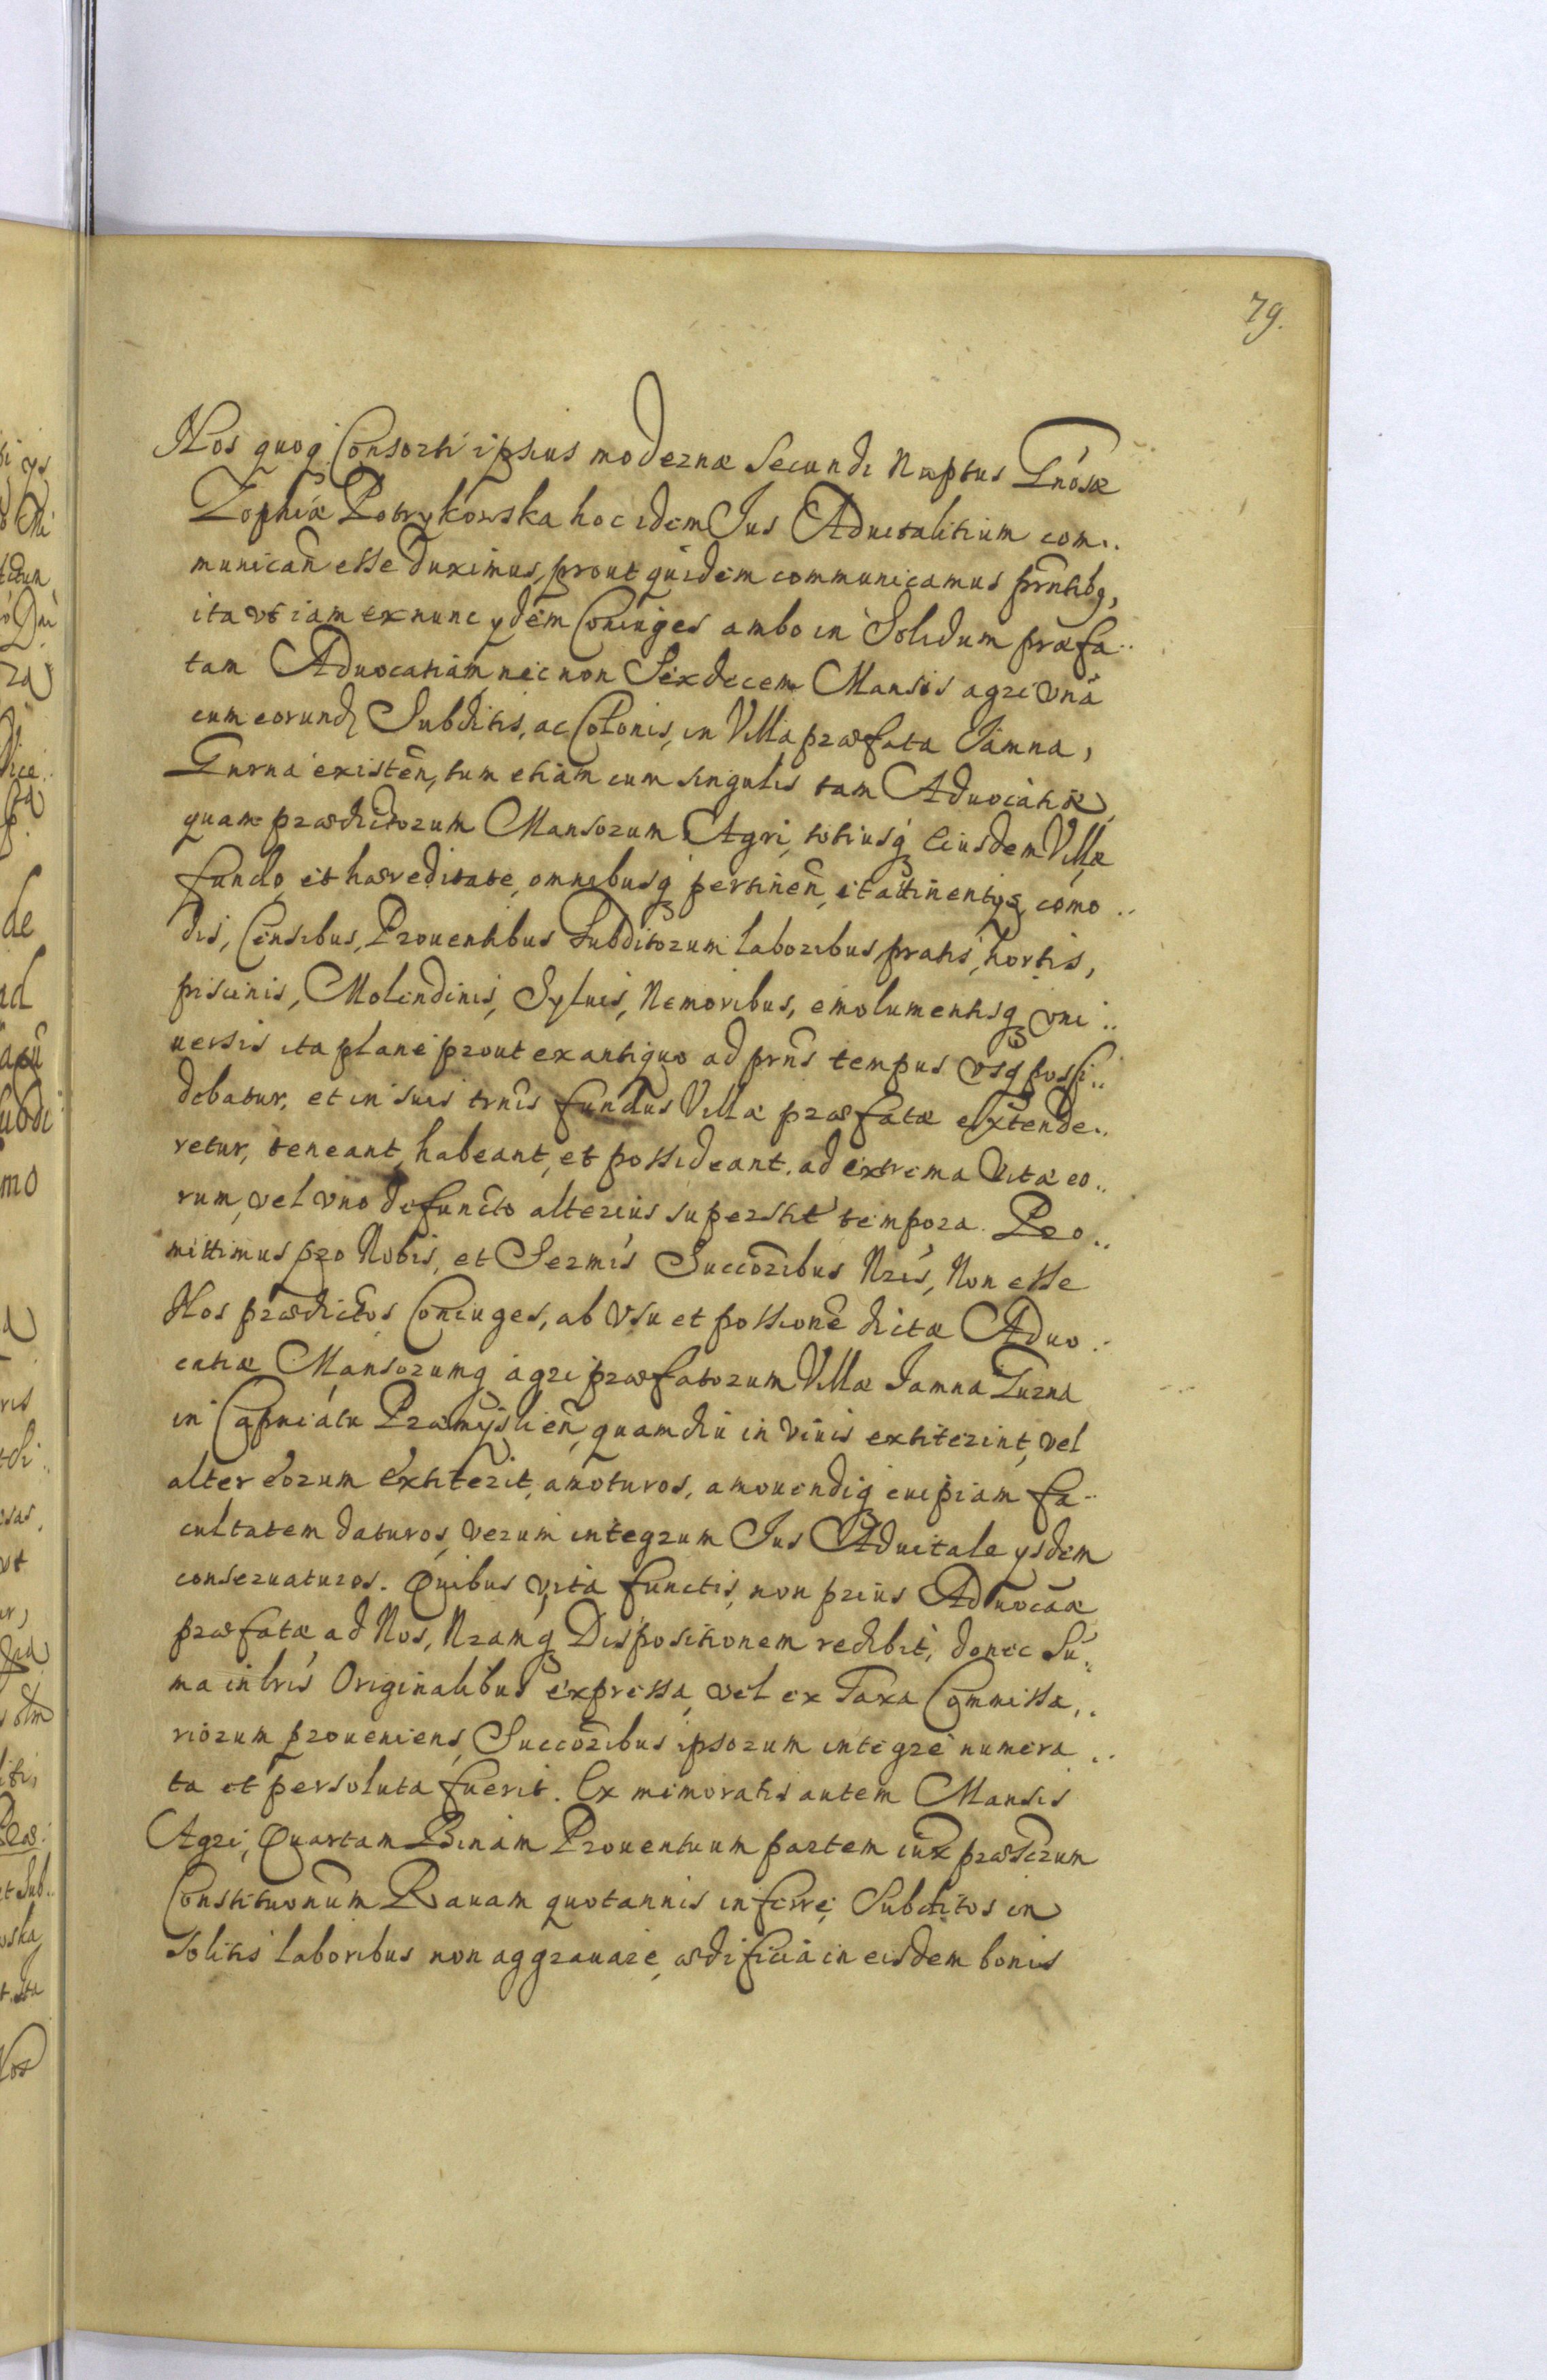 79.
Nos quoq Consorti ipsius modernæ Secundi Nuptus Gnósæ
Zophiæ Potrykowska hoc idem Ius Aduitalitium com..
municañ esse duximus, prout quidem communicamus prñtibq,
ita vt iam ex nunc ydem Coniuges ambo in Solidum præfa..
tam Aduocatiam nec non Sexdecem Mansos agri vnâ
cum eorund Subditis, ac Colonis, in Villa præfata Iamna,
Gurna existeñ, tum etiam cum singulis tam Aduocatiæ
quam prædictorum Mansorum Agri, totiusq Eiusdem Villæ
fundo, et hæreditate, omnibusq pertineñ, et attinentys, como..
dis, Censibus, Prouentibus Subditorum laboribus, pratis, hortis,
piscinis, Molendinis, Syluis, Nemoribus, emolumentisq vni..
uersis ita plane prout ex antiquo ad prñs tempus vsq possi..
debatur, et in suis trnis fundus Villæ præfatæ extende..
retur, teneant, habeant, et possideant. ad extrema Vitæ eo..
rum, vel vno defuncto alterius superstit tempora. Pro..
mittimus pro Nobis, et Sermis Succoribus Nris, Non esse
Nos prædictos Coniuges, ab Vsu et possione dictæ Aduo..
catiæ Mansorumq agri præfatorum Villæ Iamna Gurna
in Capneátu Præmyslień, quamdiu in viuis extiterint, vel
alter eorum extiterit, amoturos, amouendiq cuipiam fa..
cultatem daturos, verum integrum Ius Aduitale ysdem
conseruaturos. Quibus vita functis, non prius Aduocaæ
præfatæ ad Nos, Nramq Dispositionem redibit, donec Su..
ma in lris Originalibus expressa, vel ex Taxa Commissa..
riorum proueniens, Succoribus ipsorum integre numera..
ta et persoluta fuerit. Ex memoratis autem Mansis
Agri, Quartam Binam Prouentuum partem iux præscrum
Constituonum Rauam quotannis inferre, Subditos in
solitis laboribus non aggrauare, ædificia in eisdem bonis